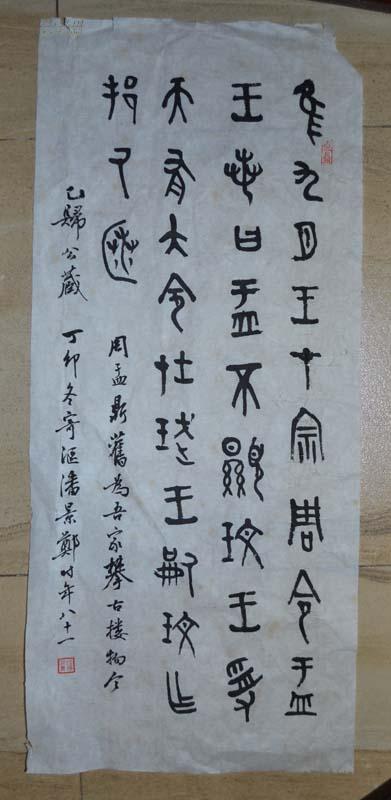 隹九月王才宗周令于盂
王若曰盂不顯玟王受
天有大令在珷王嗣玟乍
邦匿
周盂鼎舊為吾家攀古樓物今
已歸公藏 丁卯冬寄漚潘景鄭時年八十一